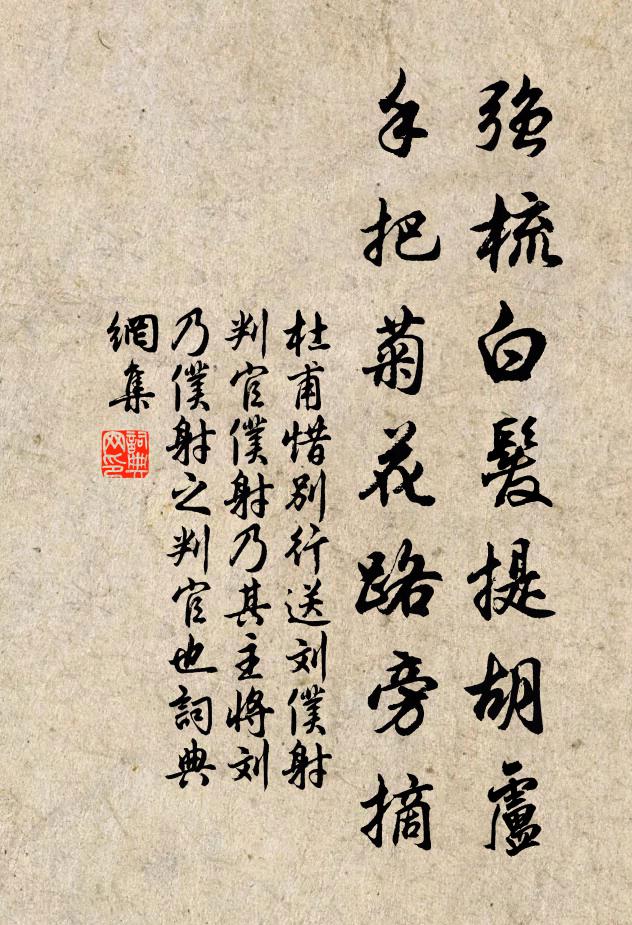 强梳白髮提胡盧
手把菊花路旁摘
杜甫惜别行送刘僕射
判官僕射乃其主将刘
乃僕射之判官也詞典
網集
詞典网印